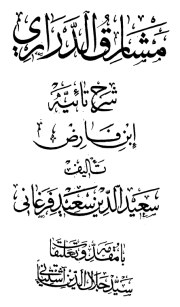 مشارق الدراري
شرح تائیّه
ابن فارض
تألیف
سعیدالدین سعید فرغانی
با مقدمه و تعلیقات
سید جلال الدین آشتیانی